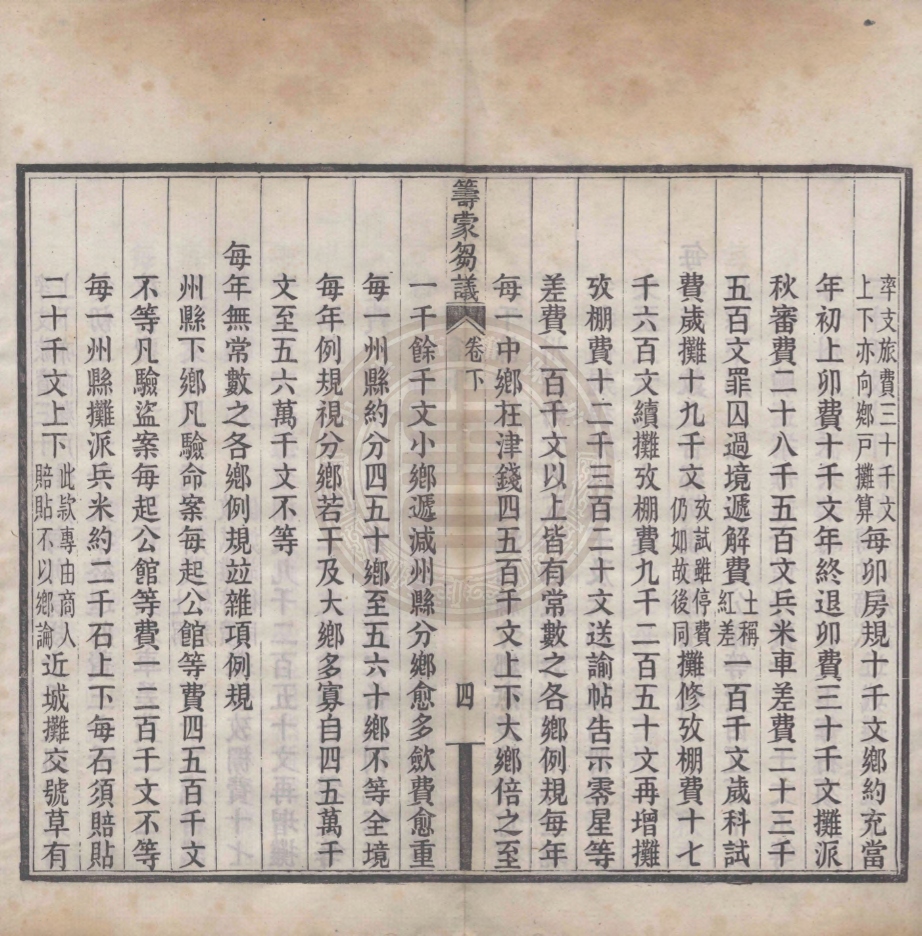 率支旅費三十千文
上下亦向鄉戶攤算
每卯房規十千文鄉約充當
年初上卯費十千文年終退卯費三十千文攤派
秋審費二十八千五百文兵米車差費二十三千
五百文罪囚過境遞解費土稱紅差一百千文歲科試
費歲攤十九千文攷試雖停費仍如故後同攤修攷棚費十七
千六百文續攤攷棚費九千二百五十文再增攤
攷棚費十二千三百二十文送諭帖告示零星等
差費一百千文以上皆有常數之各鄉例規每年
每一中鄉在津錢四五百千文上下大鄉倍之至
籌蒙芻議
卷下
四
一千餘千文小鄉遞減州縣分鄉愈多斂費愈重
每一州縣約分四五十鄉至五六十鄉不等全境
每年例規視分鄉若干及大鄉多寡自四五萬千
文至五六萬千文不等
每年無常數之各鄉例規竝雜項例規
州縣下鄉凡驗命案每起公館等費四五百千文
不等凡驗盜案每起公館等費一二百千文不等
每一州縣攤派兵米約二千石上下每石須賠貼
二十千文上下此款專由商人賠貼不以鄉論近城攤交號草有